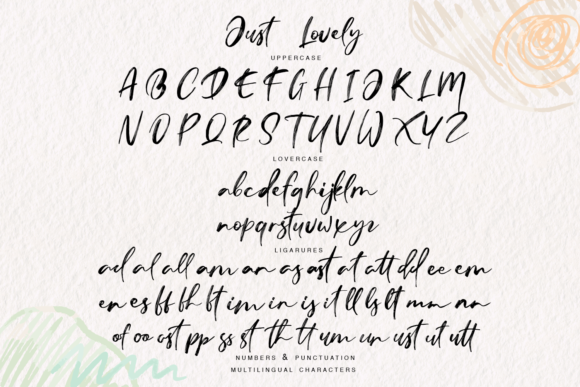 Just Lovely
UPPERCASE
A B C D E F G H I J K L M
N O P Q R S T U V W X Y Z
LOVERCASE
abcdefghijklm
nopqrstuvwxyz
LIGARURES
ad al all am an as ast at att dd ee em
en es ff fh ft im in is it ll ls lt mm nn
of oo ost pp ss st th tt um un ust ut utt
NUMBERS & PUNCTUATION
MULTILINGUAL CHARACTERS